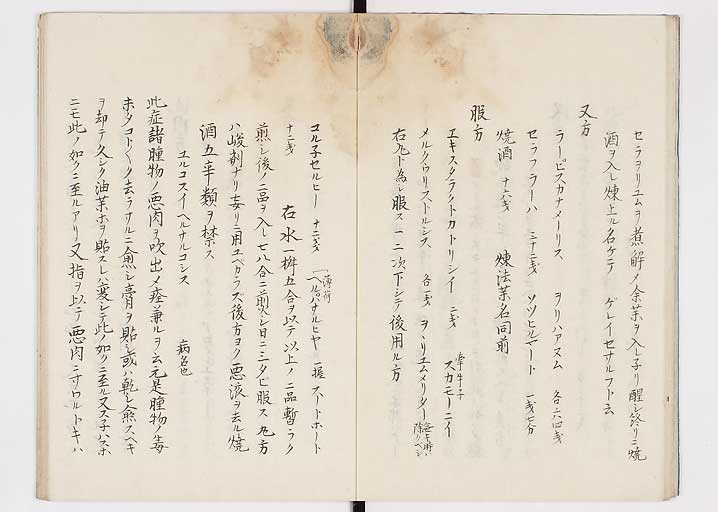 セラヲリエムヲ煮解ノ余薬ヲ入レ子リ醒シ終リニ焼
酒ヲ入レ煉上ル名ケテ ゲレイセサルフト云
又方
ラーピスカナメーリス ヲリハアヌム 各六四戔
セラフラーハ 三十二戔 ソツヒルマート 一戔七分
焼酒 十六戔 煉法葉名同前
服方
エキスタラクトカトリシイ 二戔 牽牛子 スカモーニイ
メルクウリストルシス 各一戔 ヲヽリエムメリダー
右丸ト為シ服ス一二次下シテ後用ル方
コル子セルヒー 十二戔 薄荷 ヘルバサルヒヤ 一握 スートホート
十二戔 右水一桝五合ヲ以テ以上ノ二品暫ラク
煎シ後ニ品ヲ入レ七八合ニ煎シ日ニ三タヒ服ス 丸方
ハ峻剤ナリ妄リニ用ユベカラス後方ヨク悪液ヲ去ル焼
酒五辛類ヲ禁ス
ユルコスイヘルサルコシス 病名也
此症諸腫物ノ悪肉ヲ吹出メ痊兼ルヲ云元是腫物ノ毒
未タコト〱ク去ラサルニ愈シ膏ヲ貼シ或ハ乾シ愈スヘキ
ヲ却テ久シク油薬ホヲ貼スレハ変シテ此ノ如クニ至ル又ス子ハスホ
ニモ此ノ如クニ至ルアリ又指ヲ以テ悪肉ニサワルトキハ